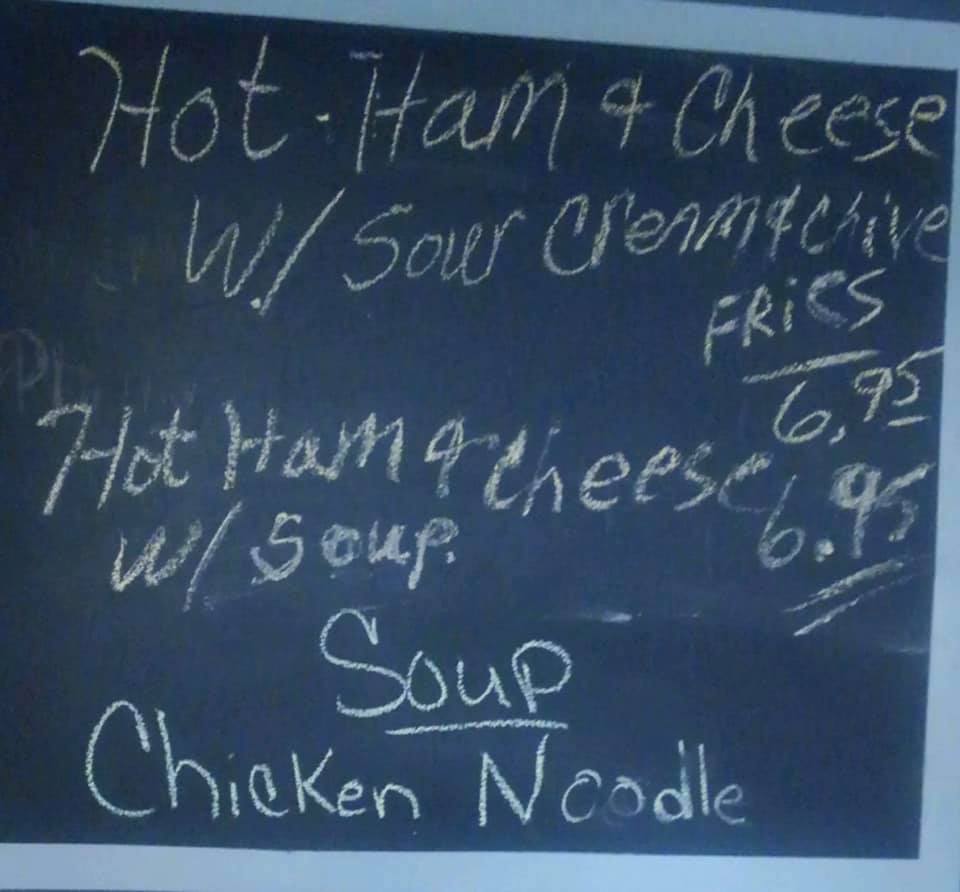 Hot - Ham & Cheese
W/ Sour Cream & Chive
FRIES
6.95
Hot Ham & Cheese 6.95
W/ Soup.
Soup
Chicken Noodle